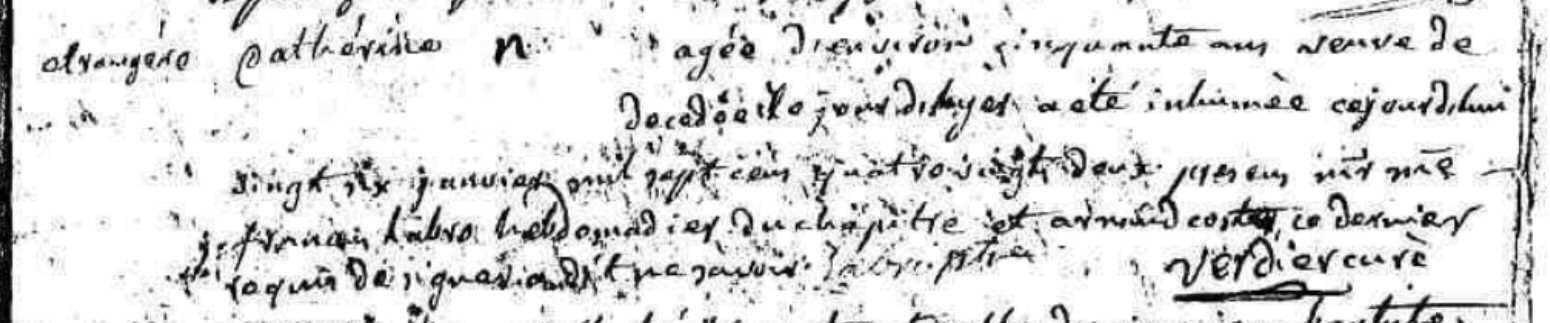 etrangére Catherine n agée d'environ cinquante ans veuve de
decedée le jour d'hyer a eté inhumèe cejourdhui
vingt six janvier mil sept cens quatre vingt deux presens mr me
j. francois labro hebdomadier du chapitre et armand costes, ce dernier
requis de signer a dit ne savoir. Labro ptre
verdier curè